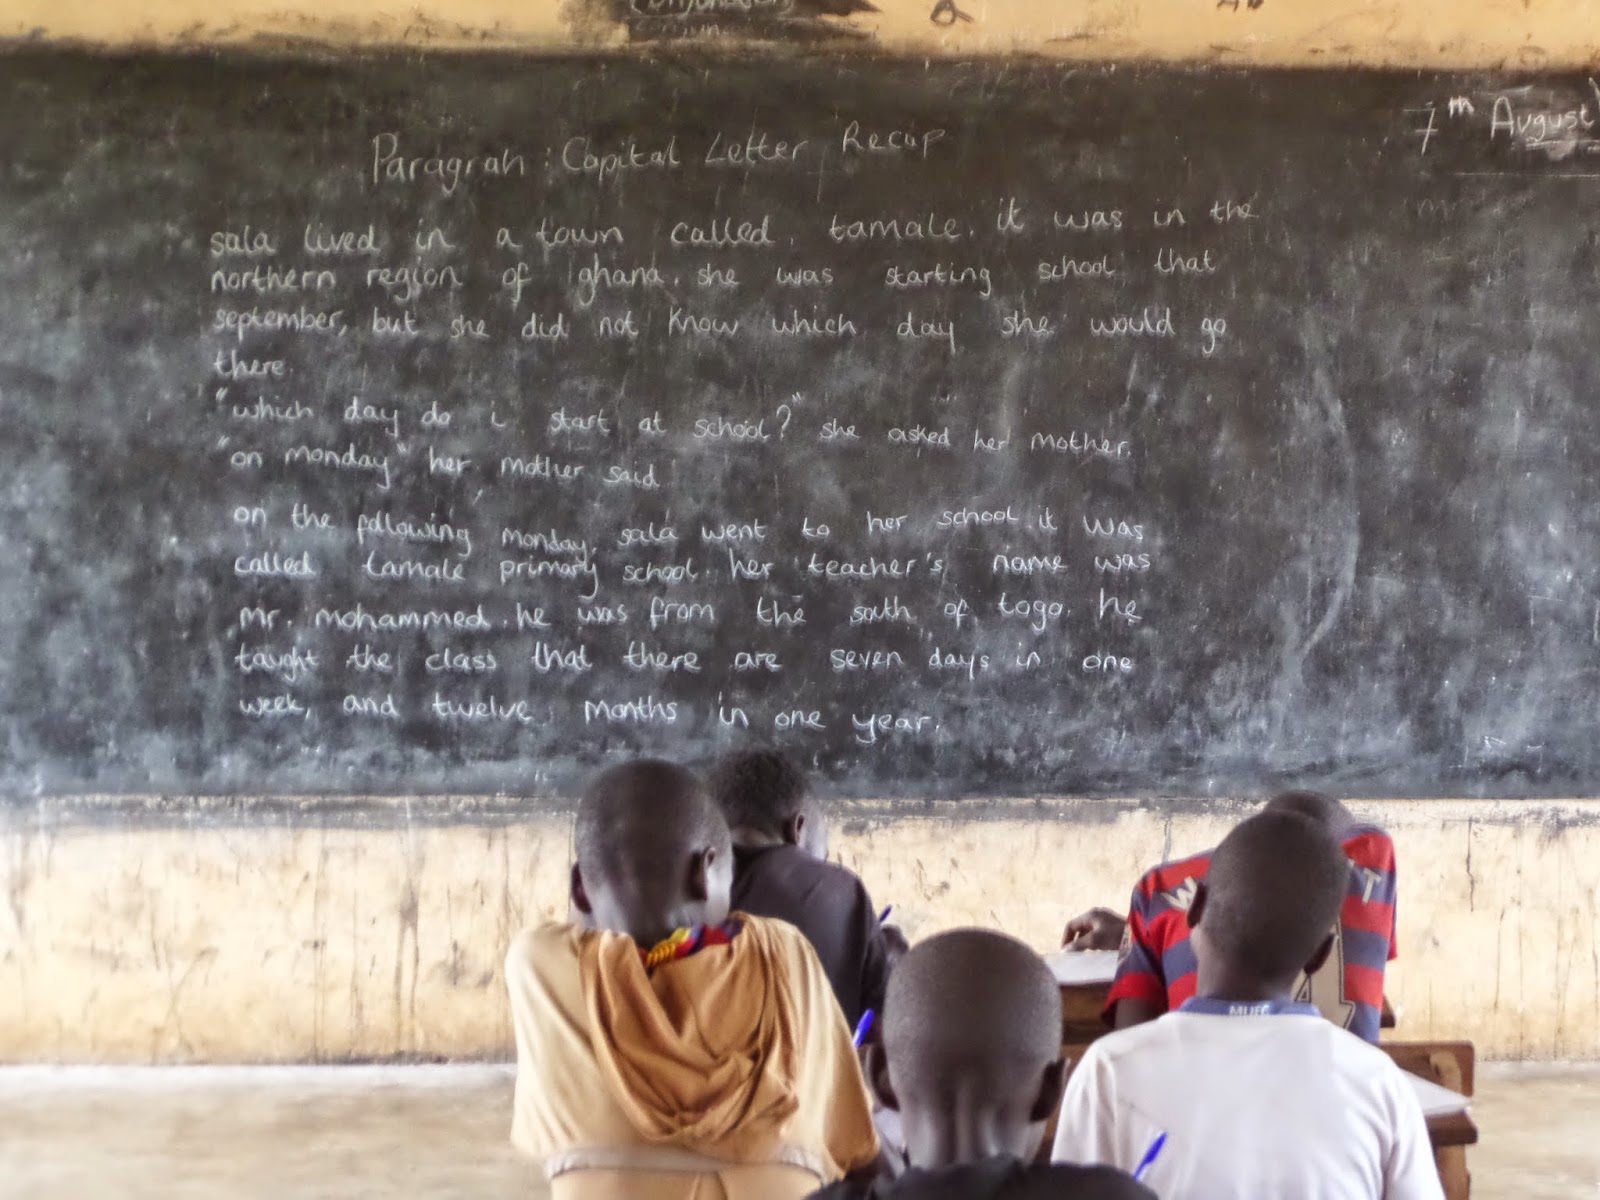 7th August
Paragrah : Capital Letter Recap
sala lived in a town called. tamale. it was in the
northern region of ghana. she was starting school that
september, but she did not know which day she would go
there.
"which day do i start at school?" she asked her mother.
"on monday" her mother said
on the following monday, sala went to her school. it was
called tamale primary school. her teacher's name was
mr. mohammed. he was from the south of togo. he
taught the class that there are seven days in one
week, and twelve months in one year.
MUFC